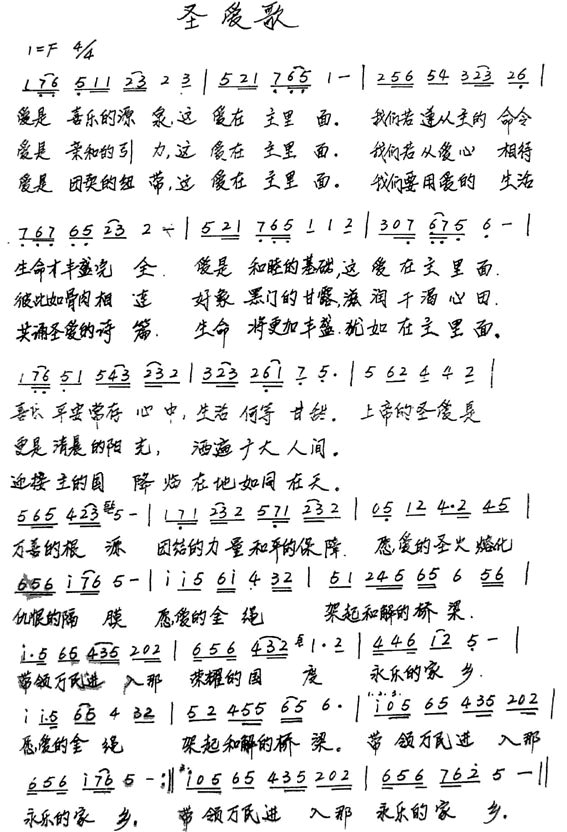 圣爱歌
1=F 4/4
176 511 23 2 3 | 521 765 1 - | 256 54 323 26 |
爱是 喜乐的源 泉,这 爱在 主里 面。 我们若 遵从主的 命令
爱是 亲和的引 力,这 爱在 主里 面。 我们若从爱心 相待
爱是 团契的纽 带,这 爱在 主里 面。 我们要用爱的 生活
767 65 23 2 - | 521 765 1 1 2 | 307 675 6 - |
生命才丰盛完 全. 爱是 和睦的基础,这 爱在主里 面.
彼此如骨肉相 连 好象 黑门的甘露,滋 润干渴心田.
共诵圣爱的诗 篇. 生命 将更加丰盛.犹如在主里面。
176 51 543 232 | 323 261 7 5· | 5 62 4 4 2 |
喜乐 平安常存 心中,生活 何等 甘甜. 上帝的圣爱是
更是 清晨的阳 光, 洒遍 广大 人间。
迎接 主的国 降临 在地如同 在天。
565 423 5 - | 171 232 571 232 | 05 12 4·2 45 |
万善的根 源 团结的力量和平的保障. 愿爱的圣火 熔化
656 176 5 - | 1 1 5 61 4 32 | 51 245 65 6 56 |
仇恨的隔 膜 愿爱的金 绳 架起和解的桥 梁.
1·5 65 435 202 | 656 432 1·2 | 446 12 5 - |
带领万民进 入那 荣耀的国 度 永乐的家 乡.
1 1·5 65 4 32 | 52 455 65 6· | 1.2.3. 105 65 435 202 |
愿爱的金 绳 架起和解的桥 梁。 带 领万民进 入那
656 176 5 - :‖ 105 65 435 202 | 656 762 5 - ‖
永乐的家 乡。 带领万民进 入那 永乐的家 乡。